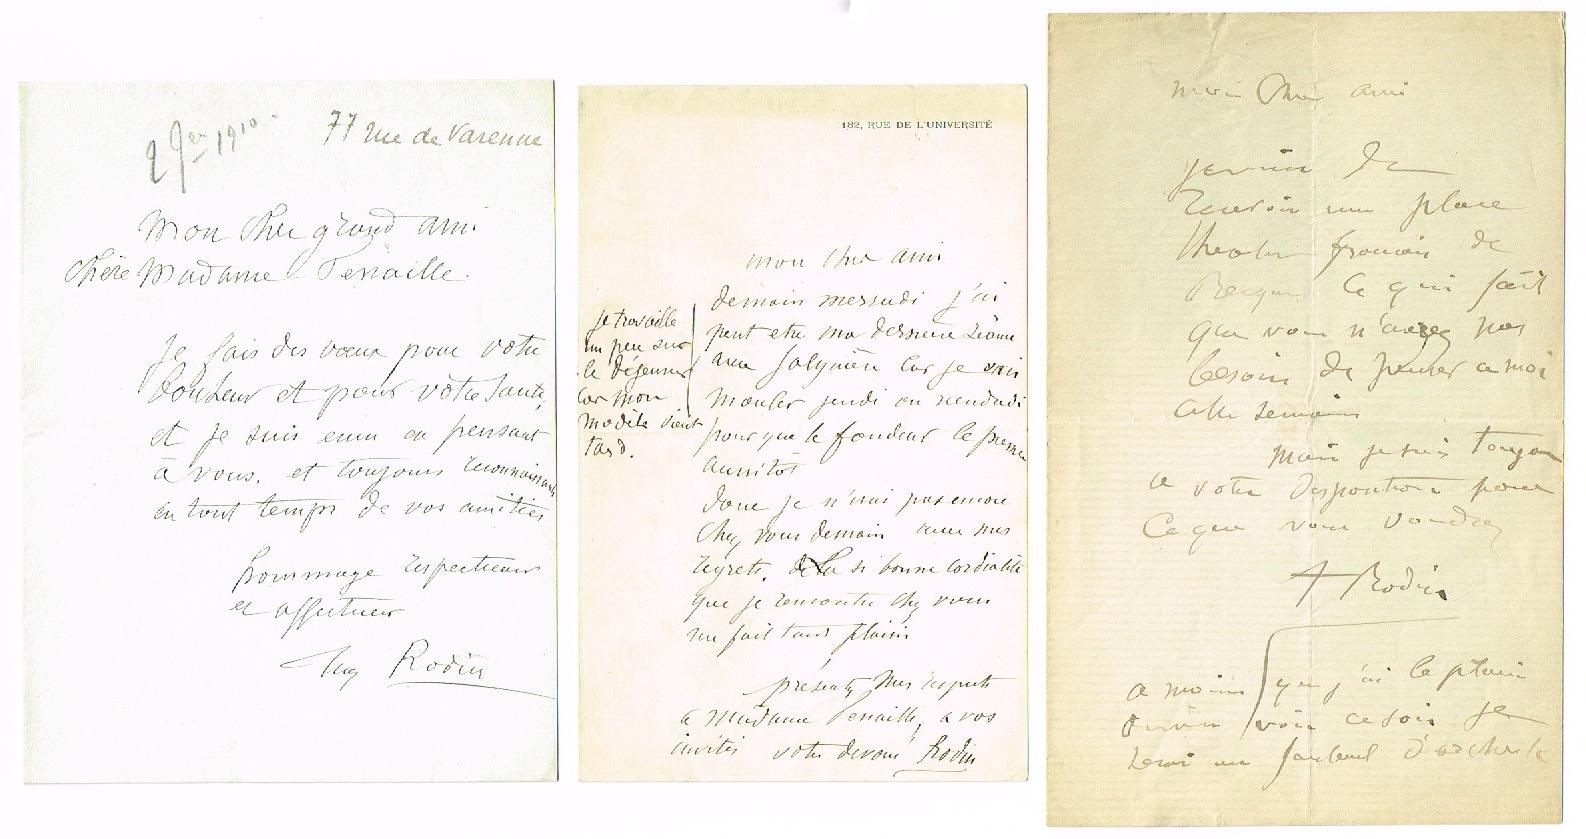 1910
77 rue de Varenne
Mon cher grand ami
chère Madame Fenaille.
Je fais des vœux pour votre
bonheur et pour votre santé,
et je suis emu en pensant
à vous. et toujours reconnaissant
en tout temps de vos amitiés
hommage respectueux
et affectueux
Aug Rodin
182, RUE DE L'UNIVERSITÉ
mon cher ami
demain mercredi j'ai
peut etre ma derniere séance
avec car je vais
mouler jeudi ou vendredi
pour que le fondeur le prenne
aussitôt
donc je n'irai pas encore
chez vous demain avec mes
regrets. de la si bonne cordialité
que je rencontre chez vous
me fait tant plaisir
présentez mes respects
a madame Fenaille, a vos
invités votre devoué Rodin
je travaille
un peu sur
le déjeuner
car mon
modèle vient
tard.
mon cher ami
je viens de
recevoir une place
theatre francais de
Becque ce qui fait
que vous n'avez pas
besoin de penser a moi
cette semaine
mais je suis toujours
a votre disposition pour
ce que vous voudrez
A Rodin
a moins que j'ai le plaisir
de vous voir ce soir je
serai un fauteuil d'orchestre